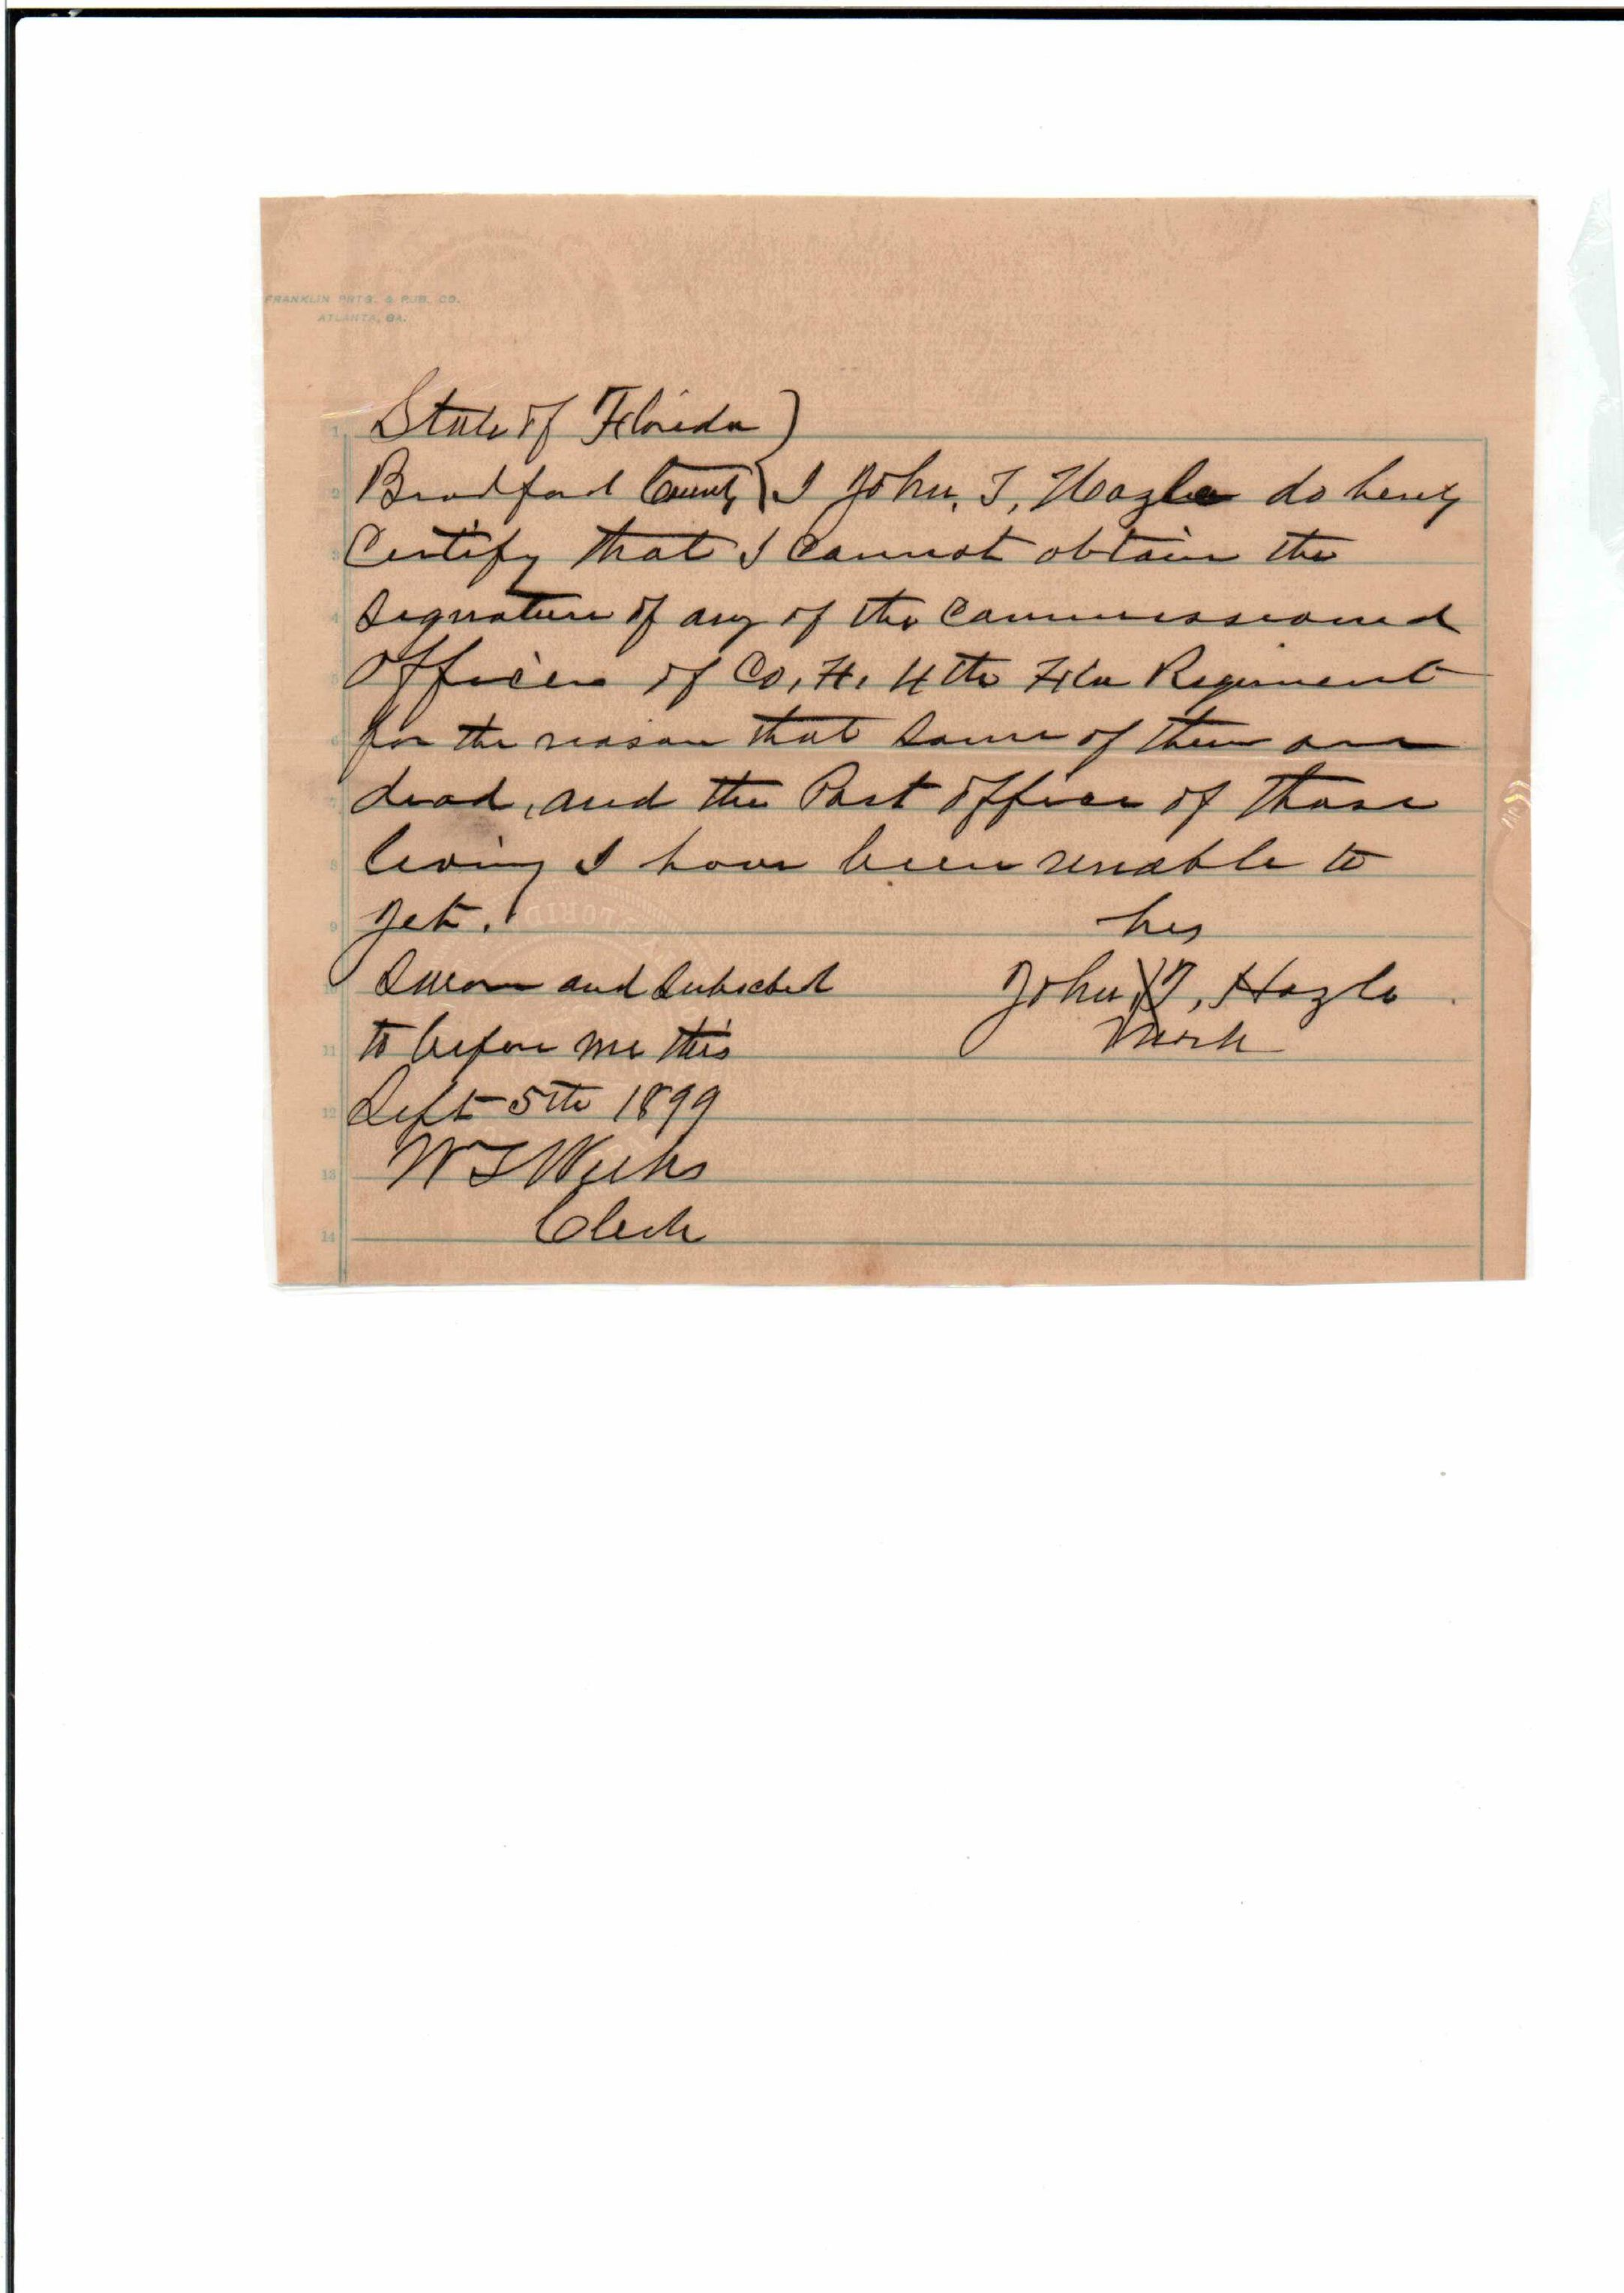 FRANKLIN PRTG. & PUB. CO.
ATLANTA, GA.
1 State of Florida )
2 Bradford County } I John. T, Hazle do hereby
3 Certify that I cannot obtain the
4 Signature of any of the Commissioned
5 Officers of Co, H, 4th Fla Regiment
6 for the reason that some of them are
7 dead, and the Post Office of those
8 living I have been unable to
9 get. his
10 Sworn and Subscbed John X T, Hazle
11 to before me this mark
12 Sept 5th 1899
13 W T Weeks
14 Clerk
FLORID